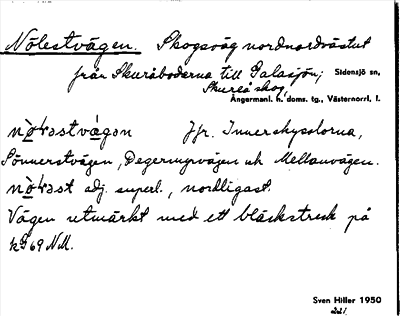 Nölestvägen. Skogsväg nordnordvästut
från Skuråboderna till Galasjön; Sidensjö sn,
Skureå skog,
Ångermanl. n. doms. tg., Västernorrl. l.
Jfr. Innerskysslorna,
Sönnerstvägen, Degermyrvägen och Mellanvägen.
adj. superl., nordligast.
Vägen utmärkt med ett bläckstreck på
kG69NM.
Sven Hiller 1950